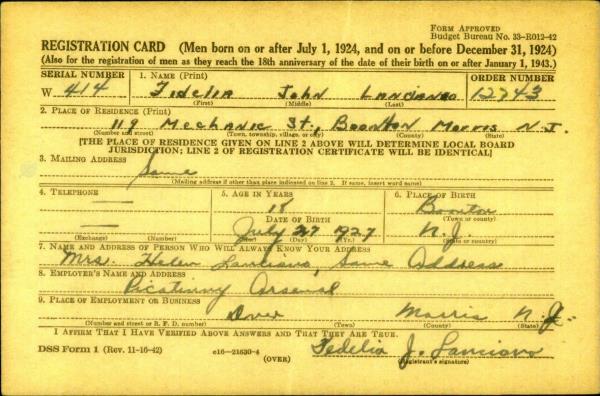 FORM APPROVED
Budget Bureau No. 33-R012-42
REGISTRATION CARD (Men born on or after July 1, 1924, and on or before December 31, 1924)
(Also for the registration of men as they reach the 18th anniversary of the date of their birth on or after January 1, 1943.)
SERIAL NUMBER 1. NAME (Print) ORDER NUMBER
W 414 Fidelia John Lanciano 12743
(First) (Middle) (Last)
2. PLACE OF RESIDENCE (Print)
119 Mechanic St., Boonton Morris N.J.
(Number and street) (Town, township, village, or city) (County) (State)
[THE PLACE OF RESIDENCE GIVEN ON LINE 2 ABOVE WILL DETERMINE LOCAL BOARD
JURISDICTION; LINE 2 OF REGISTRATION CERTIFICATE WILL BE IDENTICAL]
3. MAILING ADDRESS
Same
(Mailing address if other than place indicated on line 2. If same, insert word same)
4. TELEPHONE 5. AGE IN YEARS 6. PLACE OF BIRTH
— 18 Boonton
DATE OF BIRTH (Town or county)
— July 27 1927 N.J.
(Exchange) (Number) (Day) (Yr.) (State or country)
7. NAME AND ADDRESS OF PERSON WHO WILL ALWAYS KNOW YOUR ADDRESS
Mrs. Helen Lanciano, Same Address
8. EMPLOYER'S NAME AND ADDRESS
Picatinny Arsenal
9. PLACE OF EMPLOYMENT OR BUSINESS
Dover Morris N.J.
(Number and street or R. F. D. number) (Town) (County) (State)
I AFFIRM THAT I HAVE VERIFIED ABOVE ANSWERS AND THAT THEY ARE TRUE.
DSS Form 1 (Rev. 11-16-42) c16-21630-4 Fedelia J. Lanciano
(OVER) (Registrant's signature)